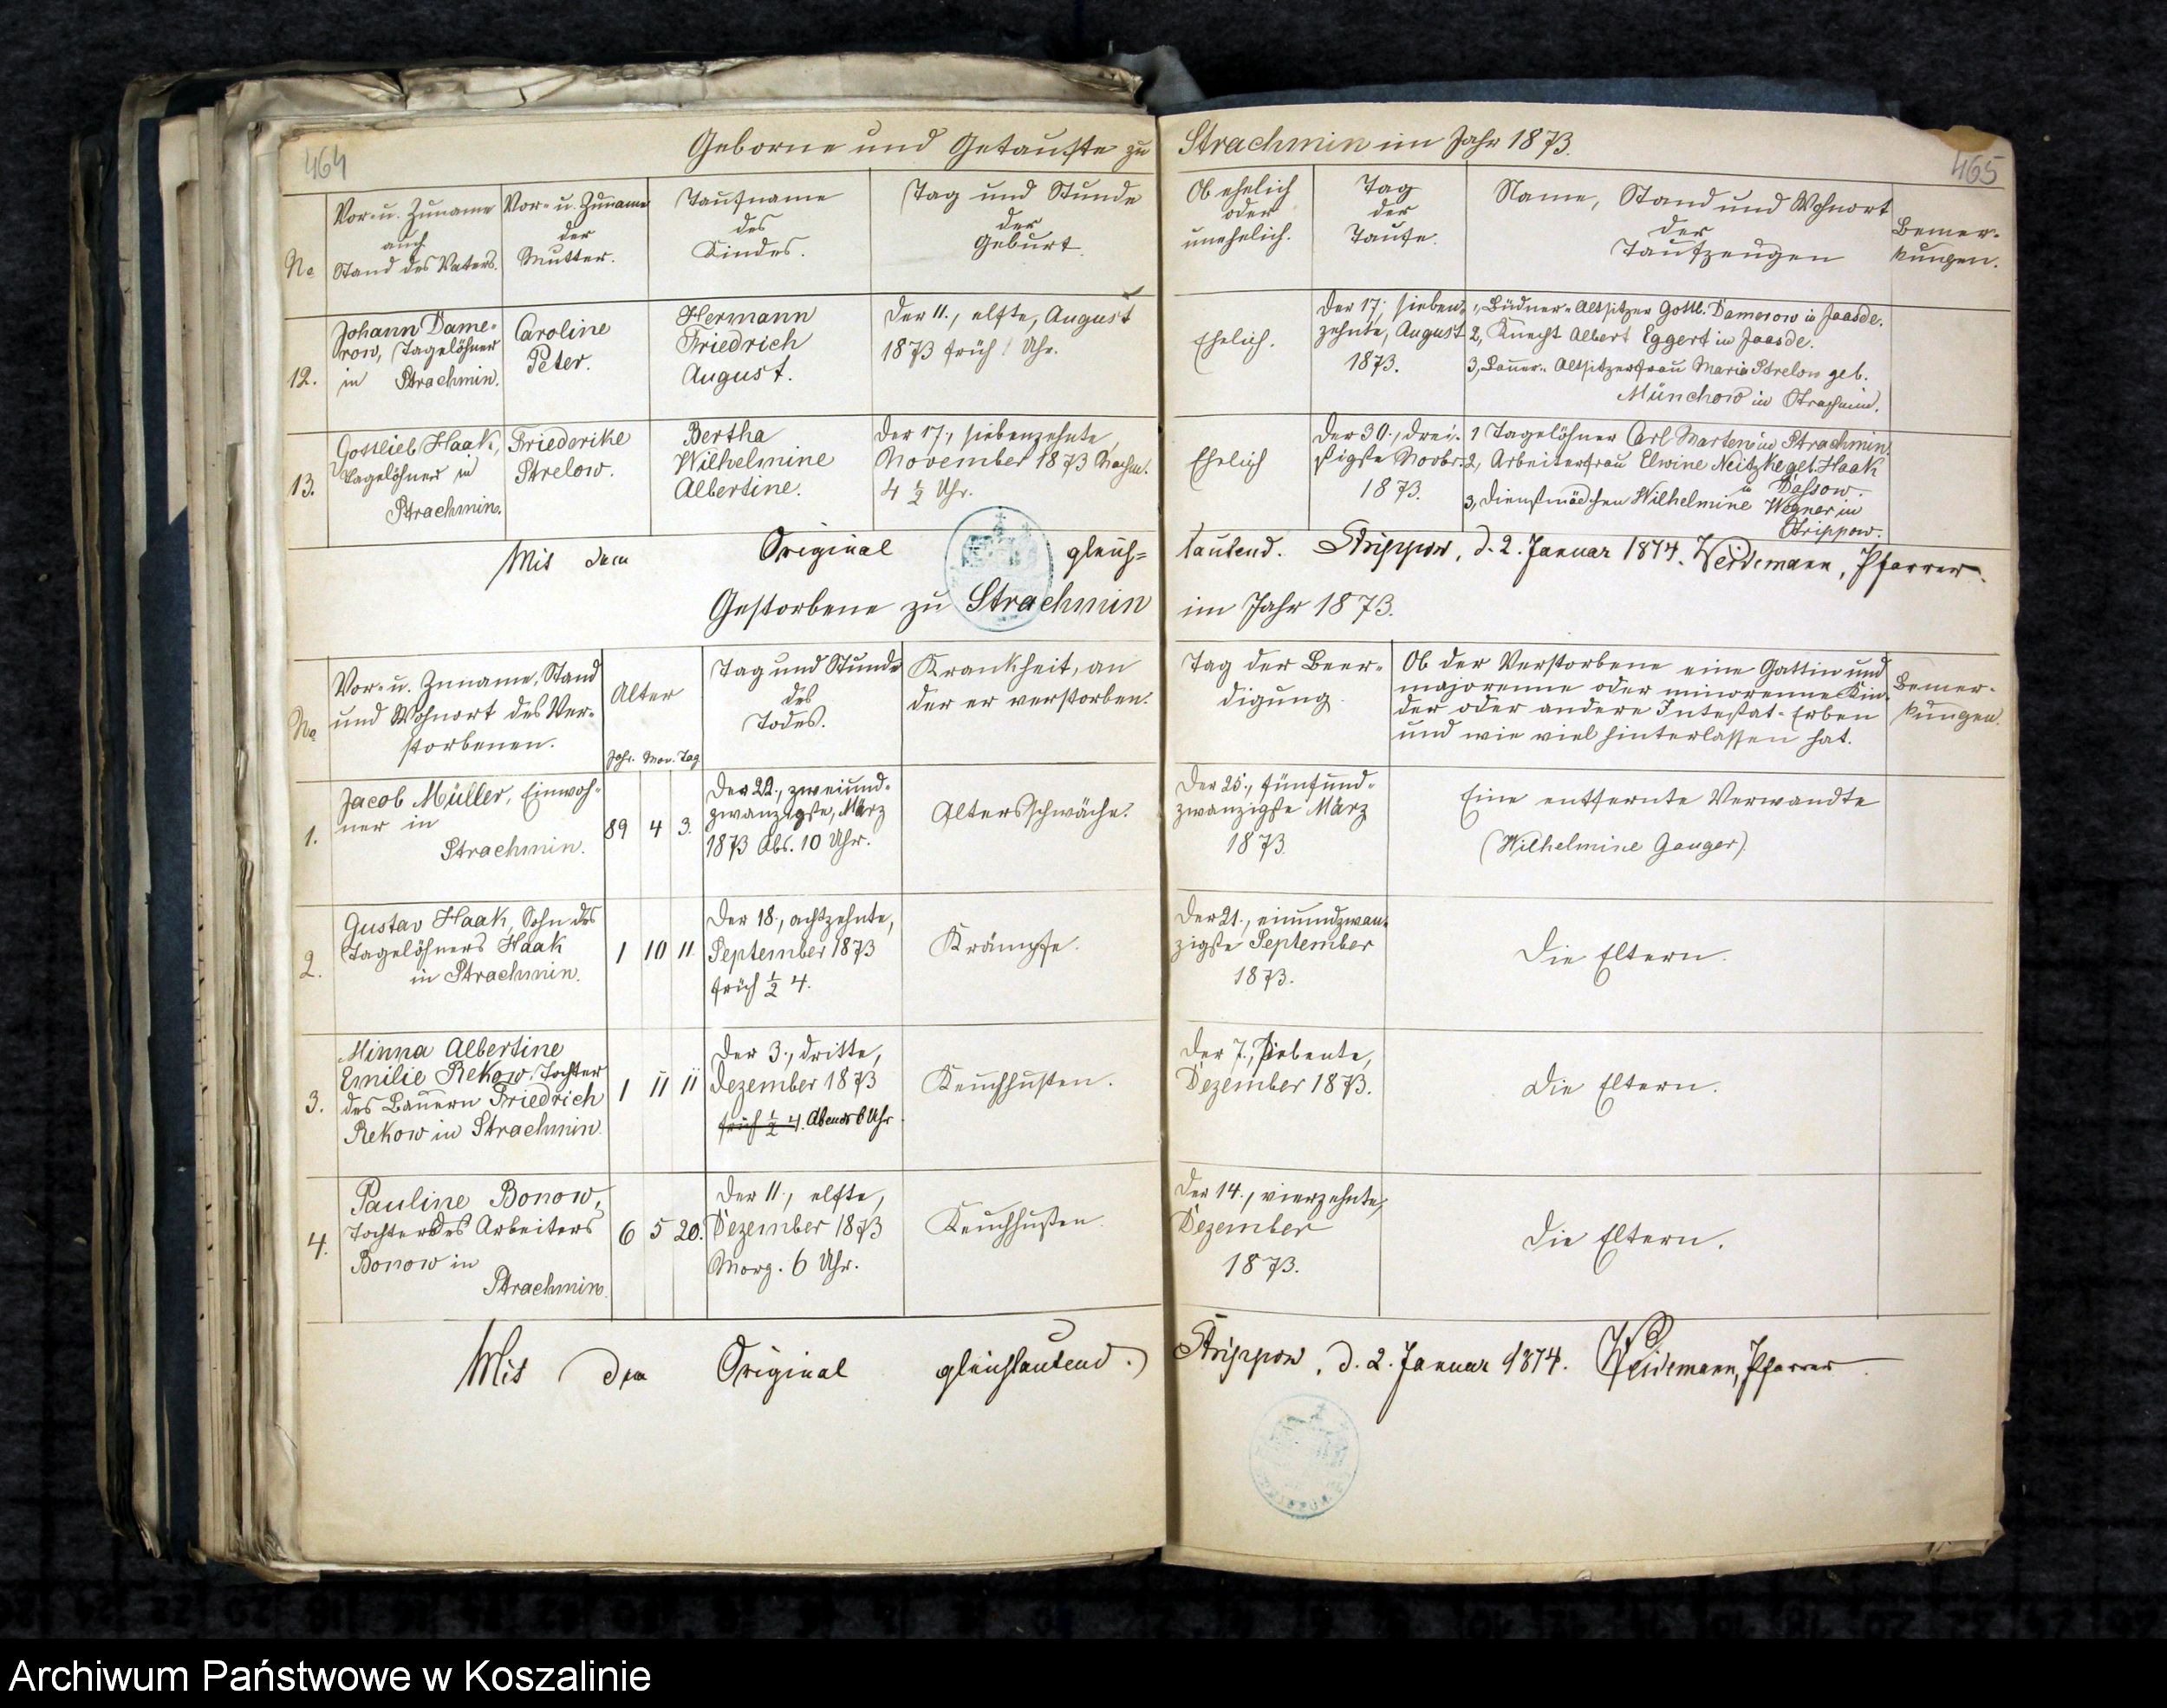 464
Geborne und Getaufte zu
No
Vor- u. Zuname
auch
Stand des Vaters.
Vor- u. Zuname
der
Mutter.
Taufname
des
Kindes.
Tag und Stunde
der
Geburt.
12.
Johann Dame-
row, Tagelöhner
in Strachmin.
Caroline
Peter.
Hermann
Friedrich
August.
Der 11., elfte, August
1873 früh 1 Uhr.
13.
Gottlieb Haak,
Tagelöhner in
Strachmin.
Friederike
Strelow.
Bertha
Wilhelmine
Albertine.
Der 17., siebenzehnte,
November 1873 Nachm.
4 ½ Uhr.
Mit dem Original gleich=
Gestorbene zu Strachmin
No
Vor- u. Zuname, Stand
und Wohnort des Ver-
storbenen.
Alter
Jahr. Mon. Tag
Tag und Stunde
des
Todes.
Krankheit, an
der er verstorben.
1.
Jacob Müller, Einwoh-
ner in
Strachmin.
89 4 3.
Der 22., zweiund-
zwanzigste, März
1873 Abs. 10 Uhr.
Altersschwäche.
2.
Gustav Haak, Sohn des
Tagelöhners Haak
in Strachmin.
1 10 11
Der 18., achtzehnte,
September 1873
früh ½ 4.
Krämpfe.
3.
Minna Albertine
Emilie Rekow, Tochter
des Bauern Friedrich
Rekow in Strachmin.
1 11 11
Der 3., dritte,
Dezember 1873
früh ½ 4. Abends 6 Uhr
Keuchhusten.
4.
Pauline Bonow,
Tochter des Arbeiters
Bonow in
Strachmin.
6 5 20.
Der 11., elfte,
Dezember 1873
Morg. 6 Uhr.
Keuchhusten.
Mit dem Original gleichlautend.
465
Strachmin im Jahr 1873.
Ob ehelich
oder
unehelich.
Tag
der
Taufe.
Name, Stand und Wohnort
der
Taufzeugen
Bemer-
kungen.
Ehelich.
Der 17., sieben-
zehnte, August
1873.
1, Büdner-Altsitzer Gottl. Damerow in Jaasde.
2, Knecht Albert Eggert in Jaasde.
3, Bauer-Altsitzerfrau Maria Strelow geb.
Münchow in Strachmin.
Ehelich
Der 30., drei-
ßigste Novbr.
1873.
1 Tagelöhner Carl Marten in Strachmin.
2, Arbeiterfrau Elwine Neitzke geb. Haak
in Dassow.
3, Dienstmädchen Wilhelmine Wegner in
Strippow.
lautend. Strippow, d. 2. Januar 1874. Weidemann, Pfarrer.
im Jahr 1873.
Tag der Beer-
digung.
Ob der Verstorbene eine Gattin und
majorenne oder minorenne Kin-
der oder andere Intestat-Erben
und wie viel hinterlassen hat.
Bemer-
kungen.
Der 25., fünfund-
zwanzigste März
1873.
Eine entfernte Verwandte
(Wilhelmine Gauger).
Der 21., einundzwan-
zigste September
1873.
Die Eltern.
Der 7., siebente,
Dezember 1873.
Die Eltern.
Der 14., vierzehnte,
Dezember
1873.
Die Eltern.
Strippow, d. 2. Januar 1874. Weidemann, Pfarrer.
Archiwum Państwowe w Koszalinie